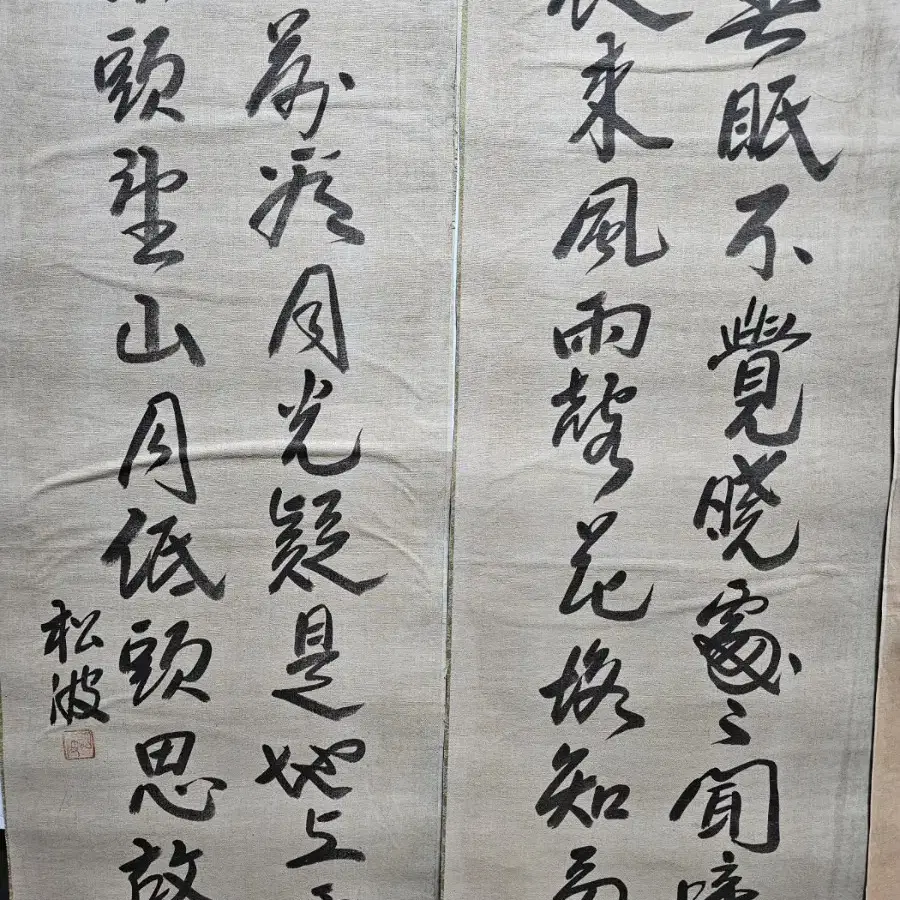 春眠不覺曉處〻聞啼
夜來風雨聲花落知多
前看月光疑是地上
頭望山月低頭思故
松波